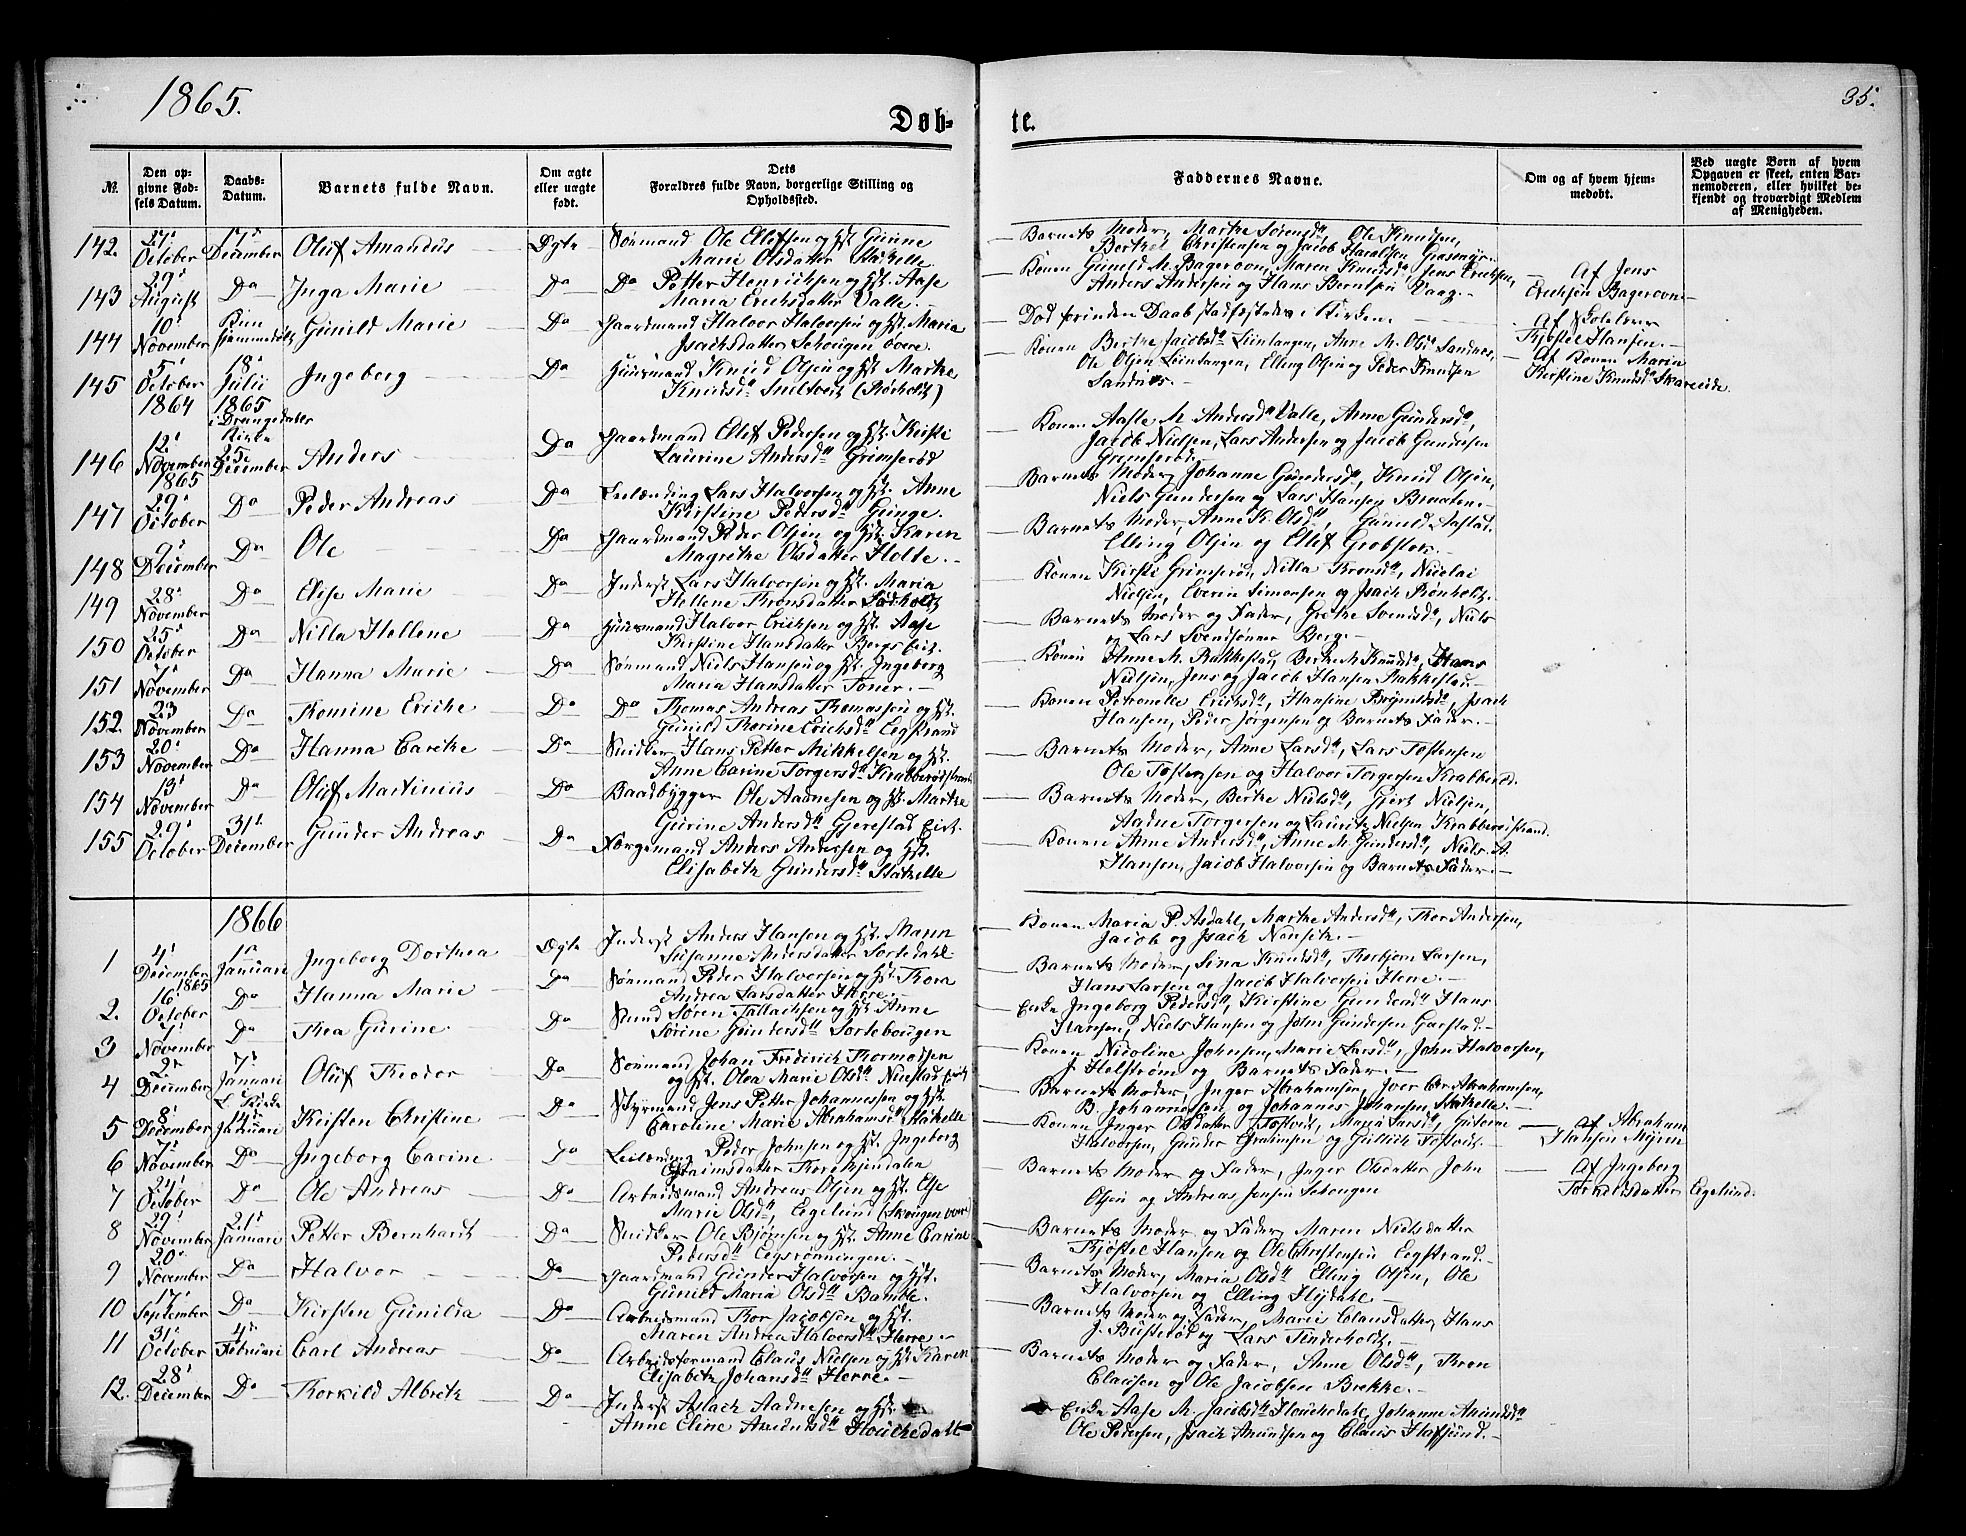 1865.
Døb-
te.
35.
№.
Den op-
givne Fød-
sels Datum.
Daabs-
Datum.
Barnets fulde Navn.
Om ægte
eller uægte
født.
Dets
Forældres fulde Navn, borgerlige Stilling og
Opholdssted.
Faddernes Navne.
Om og af hvem hjem-
medøbt.
Ved uægte Børn af hvem
Opgaven er skeet, enten Bar-
nemoderen, eller hvilket be-
kjendt og troværdigt Medlem
af Menigheden.
142. 27' October 17' December Oluf Amandus Ægte Sømand Ole Ellefsen og Hst. Gunne
Marie Olsdatter Stathelle
Barnets Moder, Marthe Sørensd., Ole Knudsen,
Berthel Christensen og Jacob Haraldsen
143 29' August Do Inga Marie Do Do Petter Henrichsen og Hst. Aase
Maria Erichsdatter Valle.
Konen Gunild M. Bagerovn, Maren Knudsd. Jens Erichsen,
Anders Andersen og Hans Berntsen Vaag.
Af Jens
Erichsen Bagerovn
144 10' November Kun hjemmedøbt Gunild Marie Do Gaardmand Halvor Halvorsen og Hst. Maria
Isachsdatter Schougen øvre
Død forinden Daab stadfæstedes i Kirken.
Af Skolelærer
Kjøstel Hansen.
145 5' October 1864 18' Julii 1865 i Drangedals Kirke Ingeborg Do Huusmand Knud Olsen og Hst. Marthe
Knudsd. (Rørholt)
Konen Berthe Jacobsd. Lintangen, Anne M. Olsd. Sandnes,
Ole Olsen Lintangen, Elling Olsen og Peder Knudsen
Sandnæs.
Af Konen Maria
Kirstine Knudsd. Skareeide
146 12' November 1865 25' December Anders Do Gaardmand Ellef Pedersen og Hst. Kirsti
Laurine Andersd. Grimserød
Konen Aasle M. Andersd. Valle, Anne Gundersd.,
Jacob Nielsen, Lars Andersen og Jacob Gundersen
Grimserød.
147 29' October Do Peder Andreas Do Leilænding Lars Halvorsen og Hst. Anne
Kirstine Pedersd. Gringe.
Barnets Moder, Johanne Gundersd., Knud Olsen,
Niels Gundersen og Lars Hansen Braaten.
148 9' December Do Ole Do Gaardmand Peder Olsen og Hst. Karen
Magrethe Olsdatter Holte.
Barnets Moder, Anne K. Olsd., Gunild Aastad.
Elling Olsen og Ellef Grobstok.
149 28' November Do Elise Marie Do Inderst Lars Halvorsen og Hst. Maria
Hellene Thronsdatter
Konen Kirsti Grimserød, Nilla Thronsd., Nicolai
Nielsen, Everin Simonsen og Isach Rønholt.
150 25' October Do Nilla Hellene Do Huusmand Halvor Erichsen og Hst. Aase
Kirstine Hansdatter Bergs Eie.
Barnets Moder og Fader, Grethe Svensd., Niels
og Lars Svendsønner Berg.
151 7' November Do Hanna Marie Do Sømand Niels Hansen og Hst. Ingeborg
Maria Hansdatter Toner.
Konen Anne M. Rakkestad, Berthe M. Knudsd., Hans
Nielsen, Jens og Jacob Hansen Rakkestad.
152. 23 November Do Thomine Eriche Do Do Thomas Andreas Thomassen og Hst.
Gunild Thorine Erichsd. Eegstrand
Konen Petronelle Erichsd., Hansine Brynildsd., Isach
Hansen, Peder Jørgensen og Barnets Fader.
153 20' November Do Hanna Carthe Do Snidker Hans Petter Mikkelsen og Hst.
Anne Carine Torgersd. Krabberødstrand
Barnets Moder, Anne Larsd., Lars Tostensen
Ole Tostensen og Halvor Torgersen Krabberød.
154 13' November Do Oluf Martinius Do Baadbygger Ole Aanesen og Hst. Marthe
Gurine Andersd. Gjerestad Eie.
Barnets Moder, Berthe Nielsd., Gjert Nielsen,
Aadne Torgersen og Lauritz Nielsen Krabberødstrand.
155 29' October 31' December Gunder Andreas Do Færgemand Anders Andersen og Hst.
Elisabeth Gundersd. Stathelle
Konen Anne Andersd., Anne M. Gundersd., Niels A.
Hansen, Jacob Halvorsen og Barnets Fader.
1866
1 4' December 1865 1' Januari Ingeborg Dorthea Ægte Inderst Anders Hansen og Hst. Maren
Susanne Andersdatter Sortedahl.
Konen Maria P. Asdahl, Marthe Andersd., Thor Andersen,
Jacob og Isach Nansete.
2. 16' October Do Hanna Marie Do Sømand Peder Halvorsen og Hst. Thora
Andrea Larsdatter Herre.
Barnets Moder, Sina Knudsd., Thorbjørn Larsen,
Hans Larsen og Jacob Halvorsen Hene.
3 7' November Do Thea Gurine Do Smed Søren Tallachsen og Hst. Anne
Sørine Gundersd. Sortebougen
Enke Ingeborg Pedersd., Kirstine Gundersd. Hans
Hansen, Niels Hansen og John Gundersen Garstad.
4 2' December 7' Januari Oluf Theodor Do Sømand Johan Frederich Thormodsen
og Hst. Olea Marie Olsd. Nustad Eie
Konen Nicoline Johnsen, Marie Larsd., John Halvorsen,
J. Holstrøm og Barnets Fader.
5 8' December 14' Januari Kirsten Christine Do Styrmand Jens Petter Johannessen og Hst.
Caroline Marie Abrahamsd. Stathelle
Barnets Moder, Inger Abrahamsen, Iver Chr. Abrahamsen,
B. Johannesen, og Johannes Johansen, Stathelle.
6 7' November Do Ingeborg Carine Do Leilænding Peder Johnsen og Hst. Ingeborg
Thorekjendalen
Konen Inger Olsdatter Tostvid, Maria Larsd., Gurine
Halvorsen, Gunder Gratimsen og Gullich Tostvid.
Af Abraham
Hansen Myren
7 24' October Do Ole Andreas Do Arbeidsmand Andreas Olsen og Hst. Else
Marie Olsd., Eegelund (Skougen øvre)
Barnets Moder og Fader, Inger Olsdatter John
Olsen og Andreas Jensen Schougen
Af Ingeborg
Torkildsdatter Eegelund.
8 29' November 21' Januari Petter Bernhardt Do Snidker Ole Bjørnsen og Hst. Anne Carine
Pedersd. Eegsrønningen.
Barnets Moder og Fader, Maren Nielsdatter
Kjøstel Hansen og Ole Christensen Eegstrand.
9 20' November Do Halvor Do Gaardmand Gunder Halvorsen og Hst.
Gunild Maria Olsd. Bamble.
Barnets Moder, Maria Olsd. Elling Olsen, Ole
Halvorsen og Elling Hydahl.
10 17' September Do Kirsten Gunilda Do Arbeidsmand Thor Jacobsen og Hst.
Maren Andrea Halvorsd. Herre.
Barnets Moder og Fader, Marie Clausdatter, Hans
J. Busterød og Lars Tinderholt.
11 31' October 4' Februari Carl Andreas Do Arbeidsformand Claus Nielsen og Hst. Karen
Elisabeth Johansd. Herre.
Barnets Moder og Fader, Anne Olsd., Thron
Clausen og Ole Jacobsen Brekke.
12. 28' December Do Thorkild Albreth Do Inderst Aslach Aadnesen og Hst.
Anne Eline Amundsd. Flouchedalt
Enke Aase M. Jacobsd. Flouchedalt, Johanne Amundsd.
Ole Pedersen, Isach Amundsen og Claus Hafsund.